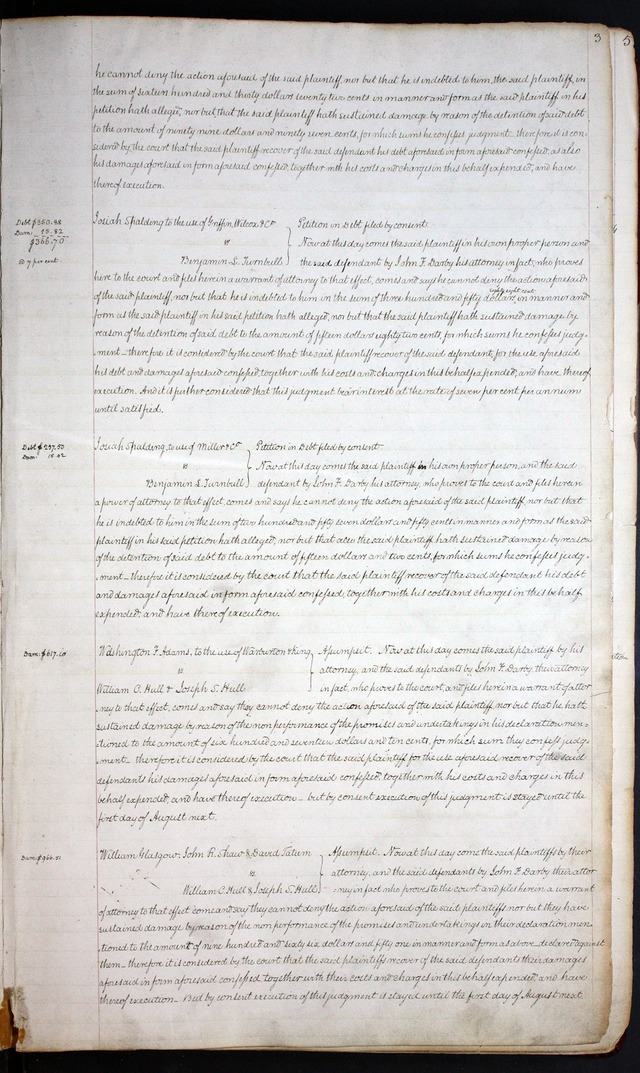 3
5
he cannot deny the action aforesaid of the said plaintiff, nor but that he is indebted to him, the said plaintiff, in
the sum of sixteen hundred and thirty dollars seventy two cents in manner and form as the said plaintiff in his
petition hath alleged, nor but that the said plaintiff hath sustained damage by reason of the detention of said debt
to the amount of ninety nine dollars and ninety seven cents, for which sums he confesses judgment - therefore it is con-
sidered by the court that the said plaintiff recover of the said defendant his debt aforesaid in form aforesaid confessed, as also
his damages aforesaid in form aforesaid confessed, together with his costs and charges in this behalf expended, and have
thereof execution.
Debt $350.88
Dam: 15.82
$366.70
@ 7 per cent
Josiah Spalding to the use of Griffin, Wilcox & Co
vs
Benjamin L. Turnbull
Petition in Debt filed by consent.
Now at this day comes the said plaintiff in his own proper person and
the said defendant by John F. Darby his attorney in fact, who proves
here to the court and files herein a warrant of attorney to that effect, comes and says he cannot deny the action aforesaid
of the said plaintiff, nor but that he is indebted to him in the sum of three hundred and fifty dollars eighty eight cents in manner and
form as the said plaintiff in his said petition hath alleged, nor but that the said plaintiff hath sustained damage by
reason of the detention of said debt to the amount of fifteen dollars eighty two cents, for which sums he confesses judg-
-ment - therefore it is considered by the court that the said plaintiff recover of the said defendant, for the use aforesaid
his debt and damages aforesaid confessed, together with his costs and charges in this behalf expended, and have thereof
execution. And it is further considered that this judgment bear interest at the rate of seven per cent per annum
until satisfied.
Debt $257.50
Dam: 15.02
Josiah Spalding, to use of Miller & Co
vs
Benjamin L. Turnbull
Petition in Debt filed by consent.
Now at this day comes the said plaintiff in his own proper person, and the said
defendant by John F. Darby his attorney, who proves to the court and files herein
a power of attorney to that effect, comes and says he cannot deny the action aforesaid of the said plaintiff, nor but that
he is indebted to him in the sum of two hundred and fifty seven dollars and fifty cents in manner and form as the said
plaintiff in his said petition hath alleged, nor but that the said plaintiff hath sustained damage by reason
of the detention of said debt to the amount of fifteen dollars and two cents, for which sums he confesses judg-
-ment - therefore it is considered by the court that the said plaintiff recover of the said defendant his debt
and damages aforesaid in form aforesaid confessed, together with his costs and charges in this behalf
expended, and have thereof execution.
Dam: $617.10
Washington F. Adams, to the use of Warburton & King
vs
William O. Hull & Joseph S. Hull
Assumpsit. Now at this day comes the said plaintiff by his
attorney, and the said defendants by John F. Darby their attorney
in fact, who proves to the court, and files herein a warrant of attor
-ney to that effect, comes and say they cannot deny the action aforesaid of the said plaintiff nor but that he hath
sustained damage by reason of the non performance of the promises and undertakings in his declaration men-
-tioned to the amount of six hundred and seventeen dollars and ten cents, for which sum they confess judg-
-ment - therefore it is considered by the court that the said plaintiff for the use aforesaid recover of the said
defendants his damages aforesaid in form aforesaid confessed, together with his costs and charges in this
behalf expended, and have thereof execution - but by consent execution of this judgment is stayed until the
first day of August next.
Dam: $966.51
William Glasgow, John R. Shaw & David Tatum
vs
William O. Hull & Joseph S. Hull
Assumpsit. Now at this day come the said plaintiffs by their
attorney, and the said defendants by John F. Darby their attor
-ney in fact who proves to the court and files herein a warrant
of attorney to that effect come and say they cannot deny the action aforesaid of the said plaintiffs nor but they have
sustained damage by reason of the non performance of the promises and undertakings in their declaration men-
tioned to the amount of nine hundred and sixty six dollars and fifty one in manner and form as above declared against
them - therefore it is considered by the court that the said plaintiffs recover of the said defendants their damages
aforesaid in form aforesaid confessed, together with their costs and charges in this behalf expended, and have
thereof execution - But by consent execution of this judgment is stayed until the first day of August next.